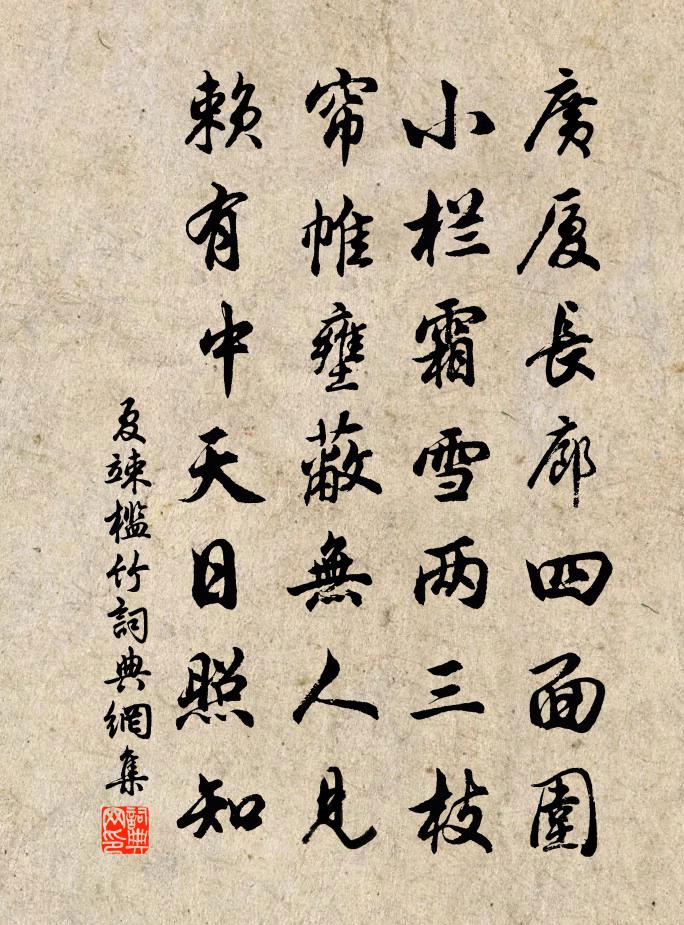 廣厦長廊四面圍
小栏霜雪两三枝
帘帷壅蔽無人見
賴有中天日照知
夏竦槛竹詞典網集
詞典网印